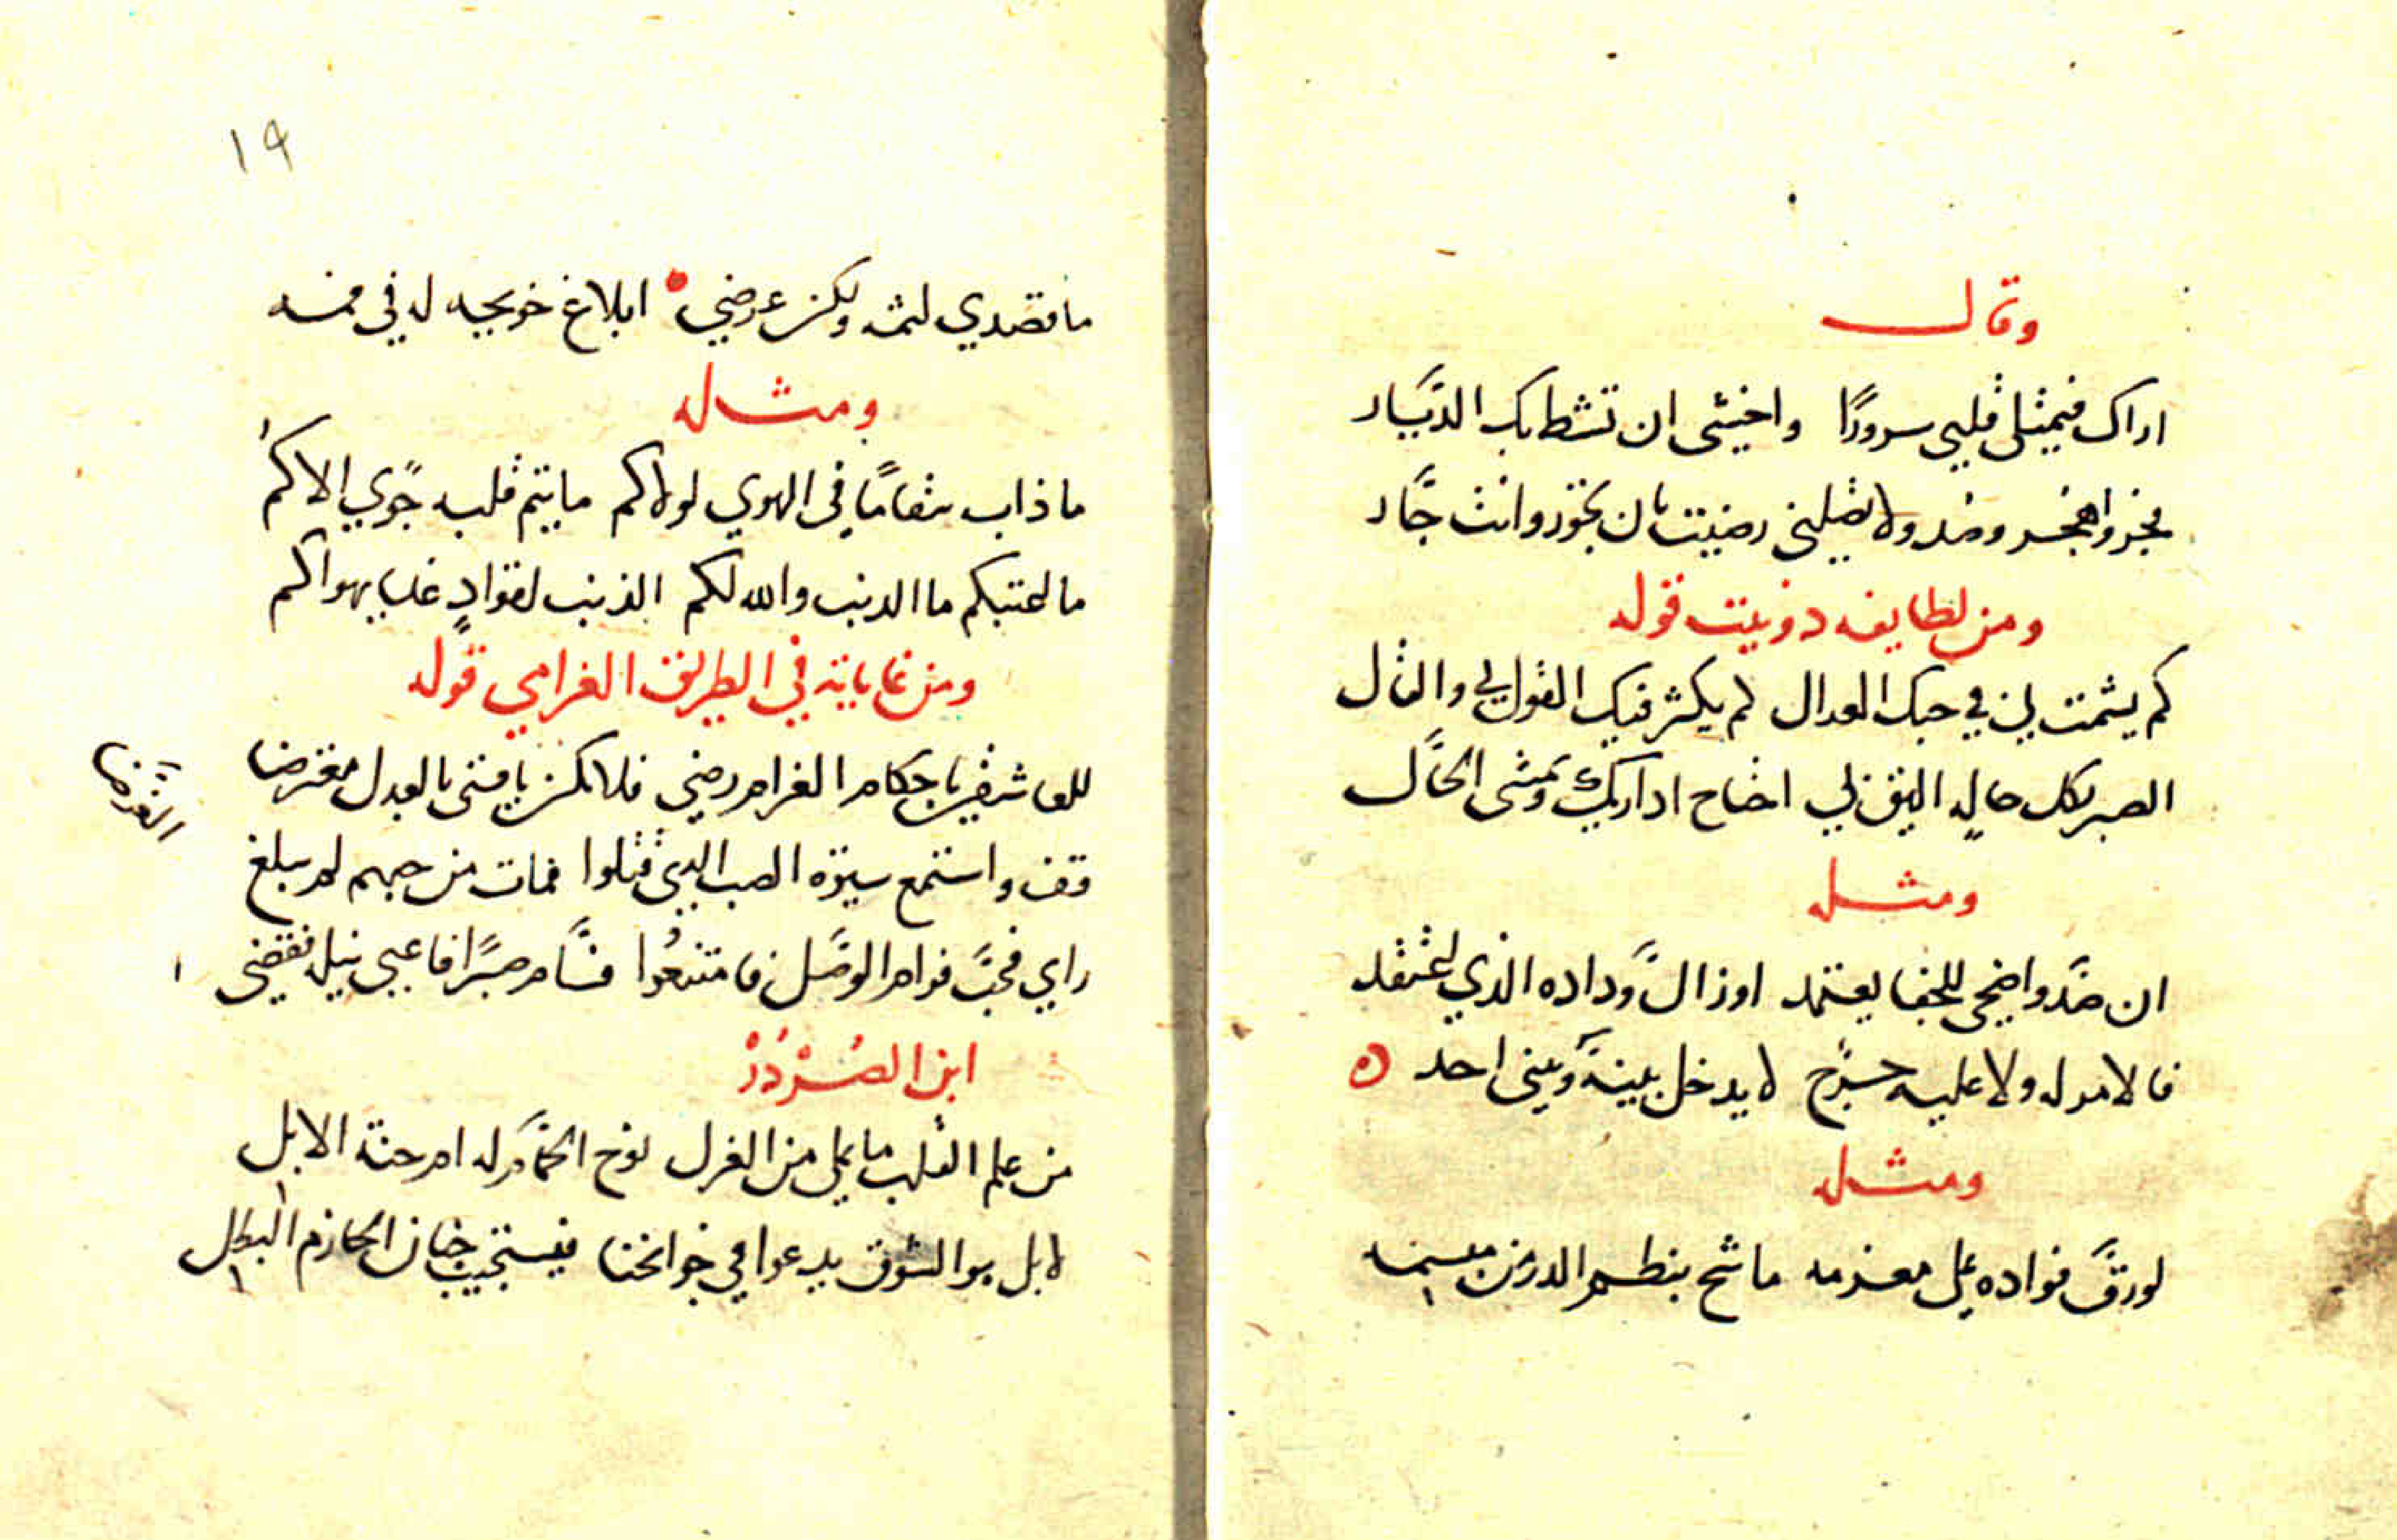 وقال
اراك فيمتلى قلبي سرورًا واخشى ان تشط بك الديار
فجر واهجر وصد ولا تصلني رضيت بان تجور وانت جار
ومن لطايفه دوبيت قوله
كم يشمت بي في حبك العدال كم يكثر فيك القول لي والقال
الصبر بكل حالٍ اليق لي احتاج اداريك ويمشى الحال
ومثله
ان صد واضحى للجفا يعتمد او زال وداده الذي اعتقد
فالامر له ولا عليه حرج لا يدخل بينه وبيني احد ه
ومثله
لو رق فواده على مغرمه ما شح بنظم الدر من مبسمه
١٩
ما قصدي لثمه ولكن غرضي ابلاغ خويجه له في فمه
ومثله
ما ذاب سقامًا في الهوي لولاكم ما يتم قلبه جوي الاكم
ما اعتبكم ما الدنب والله لكم الذنب لفوادٍ غدا يهواكم
ومن غاياته في الطريق الغرامي قوله
للعاشقين باحكام الغرام رضي فلا تكن يا فتى بالعدل معترضا
قف واستمع سيرة الصب الدي قتلوا فمات من حبهم لم يبلغ
الغرضا
راي فحب فرام الوصل فامتنعوا فسام صبرًا فاعيى نيله فقضى
ابن الصُرْدُرْ
من علم القلب ما يملي من الغزل نوح الحمام له ام حنة الابل
لا بل هو الشوق يدعوا في جوانحنا فيستجيب جنان الحازم البطل